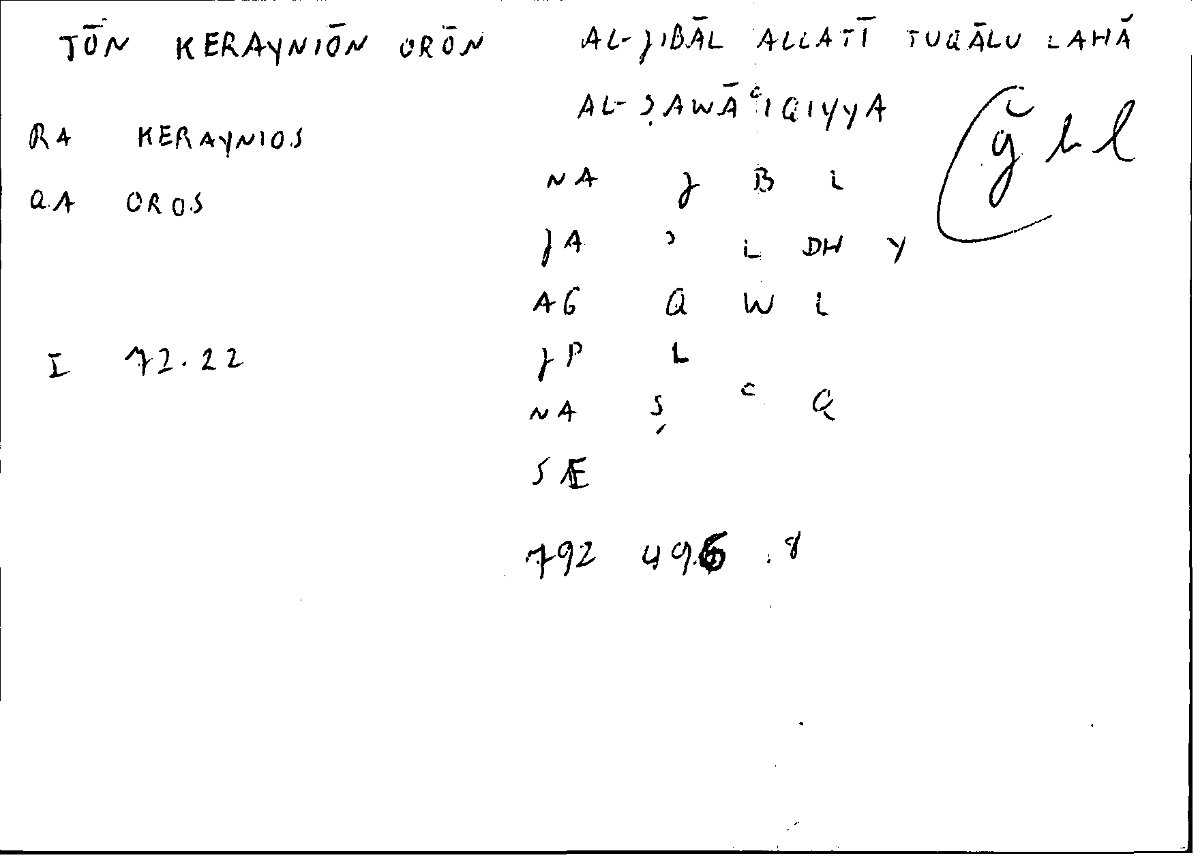 TŌN KERAYNIŌN ORŌN AL-JIBĀL ALLATĪ TUQĀLU LAHĀ
AL-ṢAWĀʿIQIYYA
RA KERAYNIOS
QA OROS
NA J B L
JA ʾ L DH Y
AG Q W L
I 72.22
JP L
NA Ṣ ʿ Q
SÆ
792 496 .8